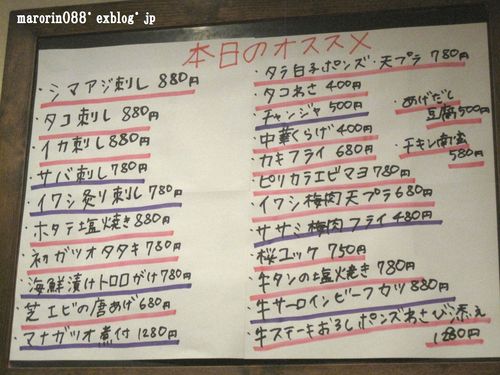 marorin088゜exblog゜jp
本日のオススメ
・シマアジ刺し 880円
・タコ刺し 880円
・イカ刺し 880円
・サバ刺し 780円
・イワシ炙り刺し 780円
・ホタテ塩焼き 880円
・初ガツオタタキ 780円
・海鮮漬けトロロがけ 780円
・芝エビの唐あげ 680円
・マナガツオ煮付 1280円
・タラ白子ポンズ・天プラ 780円
・タコわさ 400円
・チャンジャ 500円
・中華くらげ 400円
・カキフライ 680円
・ピリカラエビマヨ 780円
・イワシ梅肉天プラ 680円
・ササミ梅肉フライ 480円
・桜ユッケ 750円
・牛タンの塩焼き 780円
・牛サーロインビーフカツ 880円
・牛ステーキおろしポンズわさび添え
1280円
・あげだし
豆腐 500円
・チキン南蛮
580円